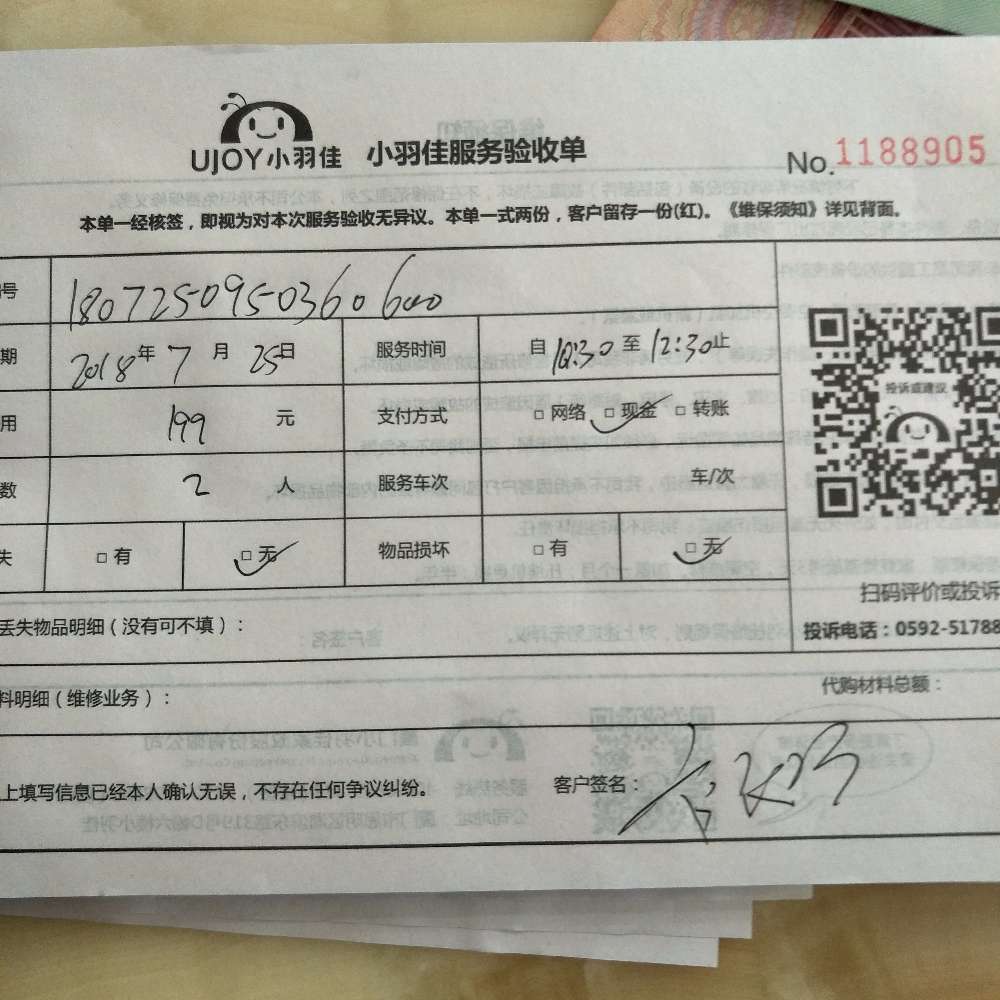 UJOY小羽佳 小羽佳服务验收单 No.1188905
本单一经核签，即视为对本次服务验收无异议。本单一式两份，客户留存一份(红)。《维保须知》详见背面。
号 1807250950360600
期 2018年7月25日 服务时间 自10:30至12:30止
用 199元 支付方式 □网络 □现金 □转账
数 2人 服务车次 车/次
失 □有 □无 物品损坏 □有 □无
投诉或建议
扫码评价或投诉
丢失物品明细(没有可不填)：
投诉电话：0592-51788
料明细(维修业务)：
代购材料总额：
上填写信息已经本人确认无误，不存在任何争议纠纷。 客户签名：